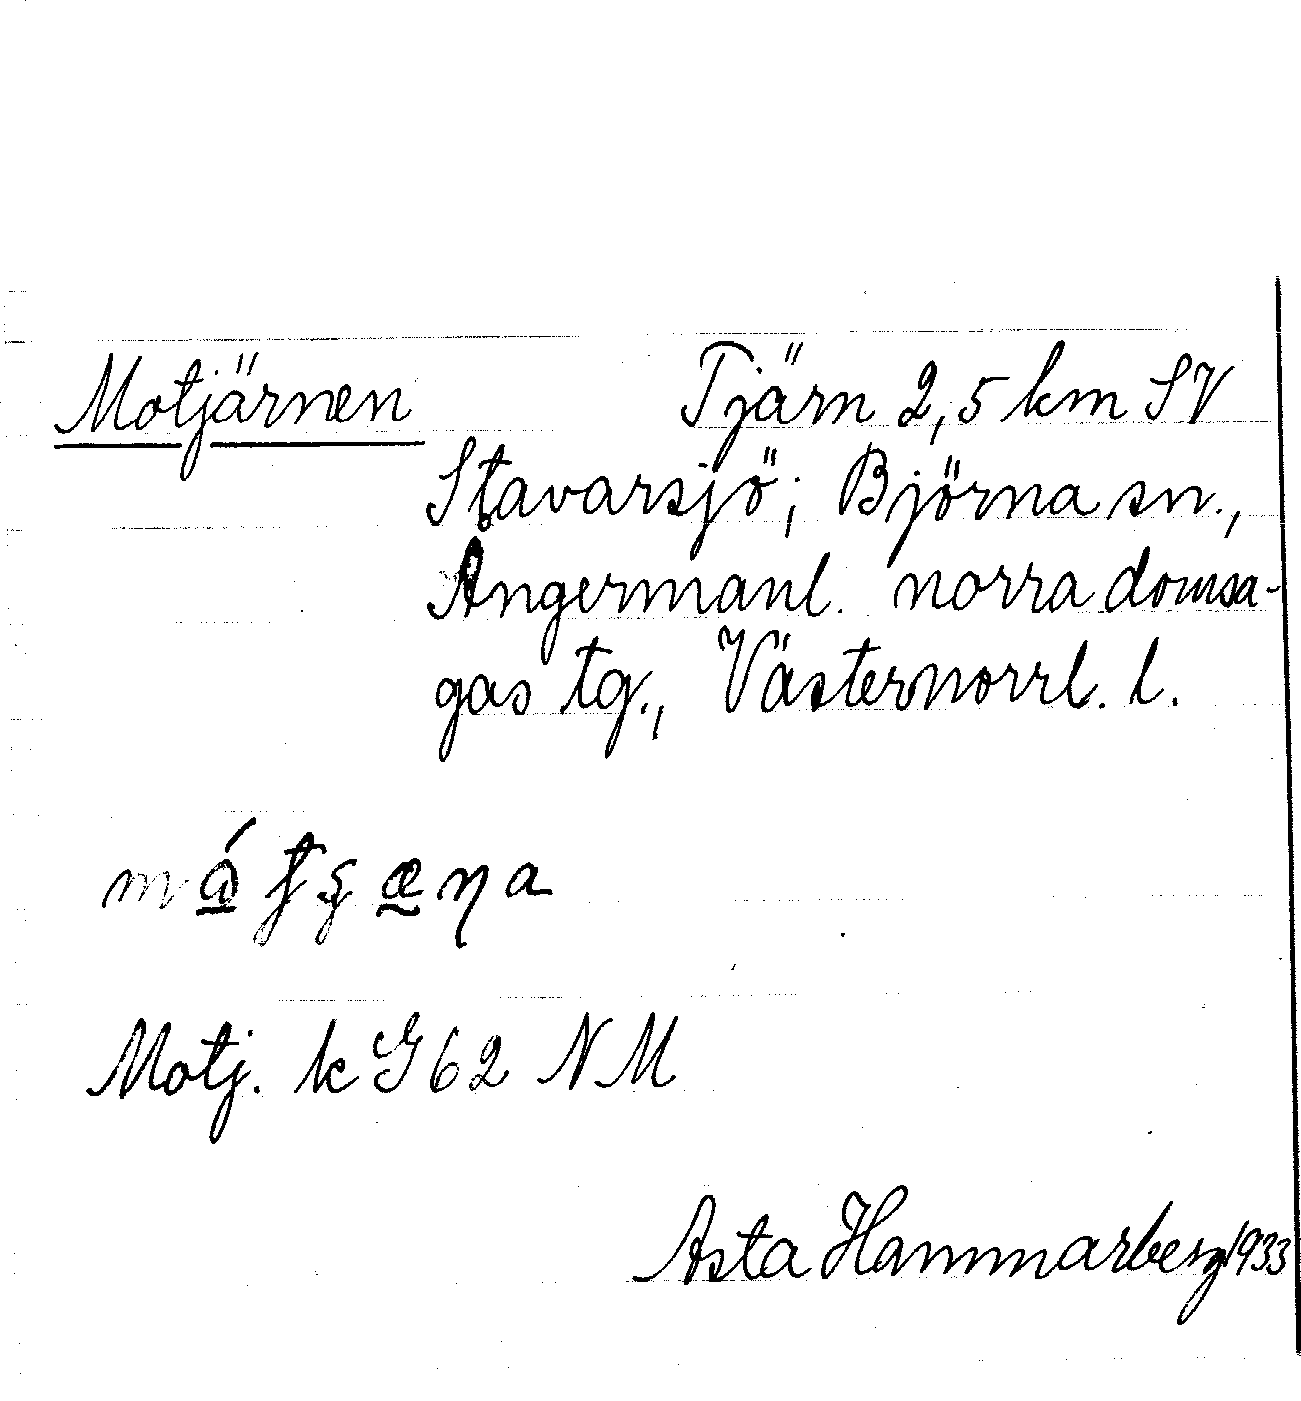 Motjärnen Tjärn 2,5 km SV
Stavarsjö; Björna sn.,
Ångermanl. norra domsa-
gas tg., Västernorrl. l.
Motj. k G 62 NM
Asta Hammarberg 1933